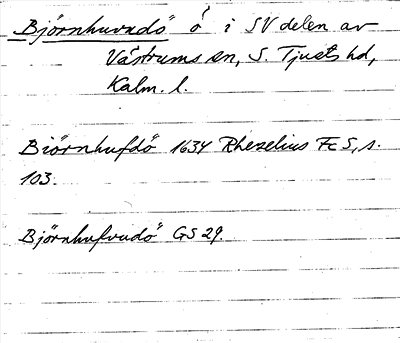 Björnhuvudö ö i SV delen av
Västrums sn, S. Tjusts hd,
Kalm. l.
Biörnhufdö 1634 Rhezelius Fc 5, s.
103.
Björnhufvudö GS 29.